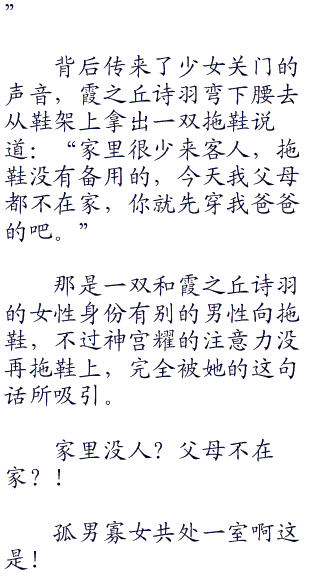 ”
背后传来了少女关门的
声音，霞之丘诗羽弯下腰去
从鞋架上拿出一双拖鞋说
道：“家里很少来客人，拖
鞋没有备用的，今天我父母
都不在家，你就先穿我爸爸
的吧。”
那是一双和霞之丘诗羽
的女性身份有别的男性向拖
鞋，不过神宫耀的注意力没
再拖鞋上，完全被她的这句
话所吸引。
家里没人？父母不在
家？！
孤男寡女共处一室啊这
是！